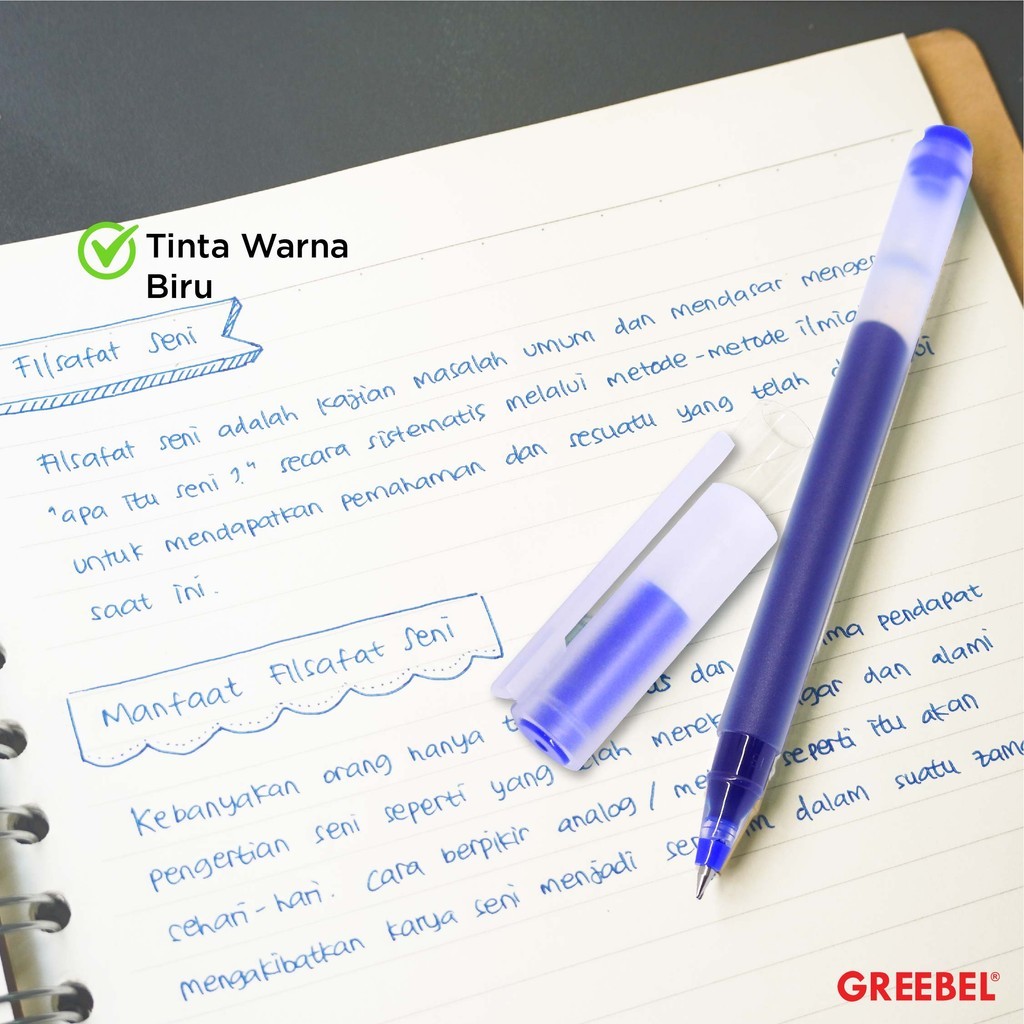 Tinta Warna
Biru
Filsafat Seni
Filsafat seni adalah kajian masalah umum dan mendasar
"apa itu seni?" secara sistematis melalui metode-metode
untuk mendapatkan pemahaman dan sesuatu yang telah
saat ini.
Manfaat Filsafat Seni
Kebanyakan orang hanya dan pendapat
pengertian seni seperti yang dan alami
sehari-hari. cara berpikir analog / seperti itu akan
mengakibatkan karya seni menjadi dalam suatu
GREEBEL®